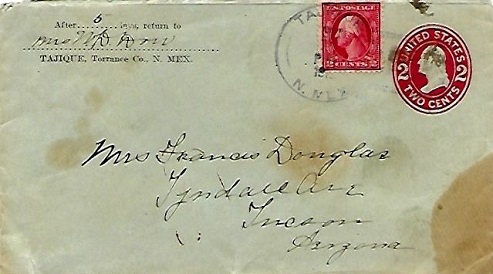 After 5 days, return to
Mrs W D Dow
TAJIQUE, Torrance Co., N. MEX.
TA
N. MEX
U.S. POSTAGE
2 CENTS 2
UNITED STATES
2 2
TWO CENTS
Mrs Francis Douglas
Tyndall Ave
Tucson
Arizona